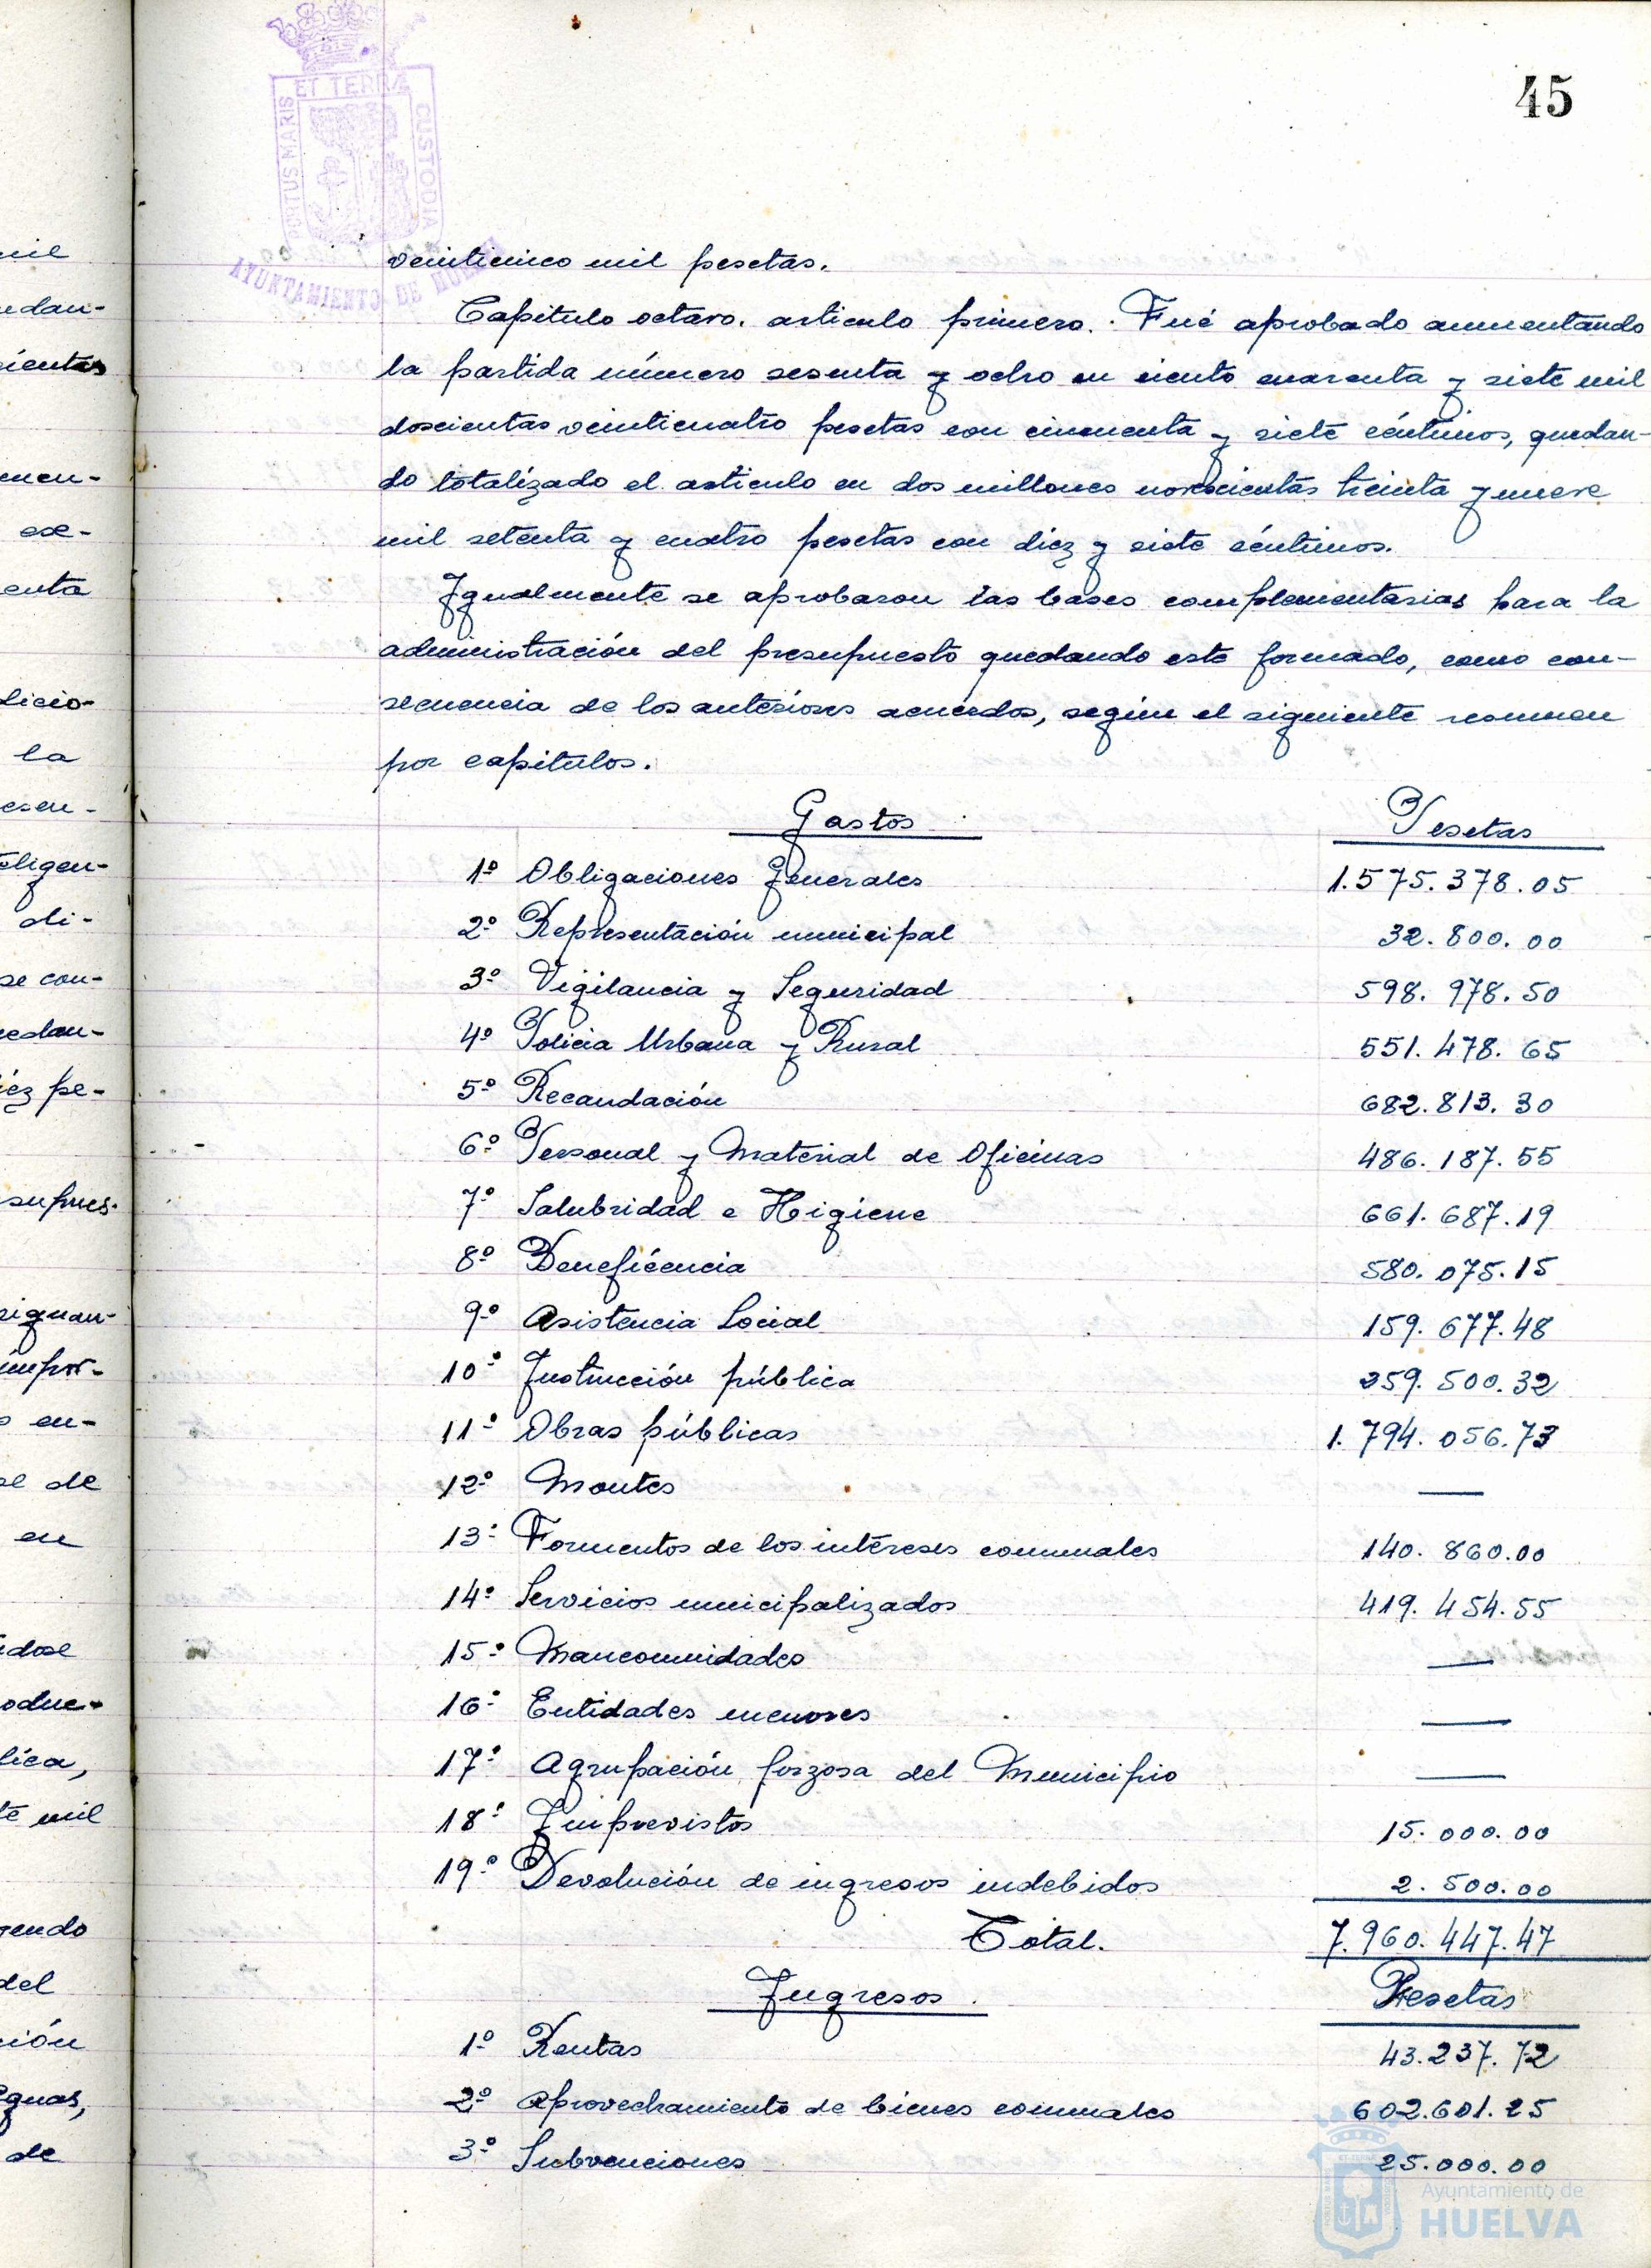 45
PORTUS MARIS ET TERRÆ CUSTODIA
AYUNTAMIENTO DE HUELVA
veinticinco mil pesetas.
Capítulo octavo. artículo primero. Fué aprobado aumentando
la partida número sesenta y ocho en ciento cuarenta y siete mil
doscientas veinticuatro pesetas con cincuenta y siete céntimos, quedan-
do totalizado el artículo en dos millones novecientas treinta y nueve
mil setenta y cuatro pesetas con diez y siete céntimos.
Igualmente se aprobaron las bases complementarias para la
administración del presupuesto quedando este formado, como con-
secuencia de los anteriores acuerdos, según el siguiente resumen
por capitulos.
Gastos Pesetas
1º Obligaciones Generales 1.575.378.05
2º Representación municipal 32.800.00
3º Vigilancia y Seguridad 598.978.50
4º Policia Urbana y Rural 551.478.65
5º Recaudación 682.813.30
6º Personal y Material de Oficinas 486.187.55
7º Salubridad e Higiene 661.687.19
8º Beneficencia 580.075.15
9º Asistencia Social 159.677.48
10º Instrucción pública 259.500.32
11º Obras públicas 1.794.056.73
12º Montes —
13º Formentos de los intereses comunales 140.860.00
14º Servicios municipalizados 419.454.55
15º Mancomunidades —
16º Entidades menores —
17º Agrupación forzosa del Municipio —
18º Imprevistos 15.000.00
19º Devolución de ingresos indebidos 2.500.00
Total. 7.960.447.47
Ingresos. Pesetas
1º Rentas 43.237.72
2º Aprovechamiento de bienes comunales 602.601.25
3º Subvenciones 25.000.00
Ayuntamiento de
HUELVA
mil
uedan-
cientas
men-
ese-
enta
dicio-
la
esen-
teligen-
di-
se con-
uedan-
iez pe-
supues-
signan-
impor-
en-
de
en
ndose
oduc-
lica,
te mil
yendo
del
ción
eguas,
de